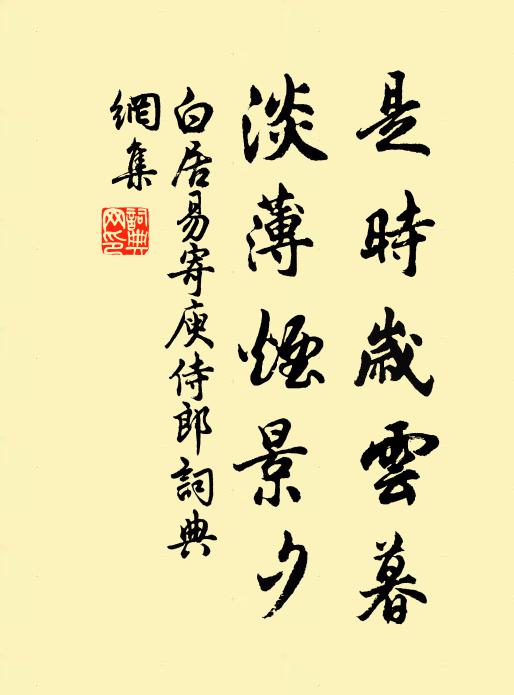 是時歲雲暮
淡薄煙景夕
白居易寄庾侍郎詞典
網集
詞典
网印